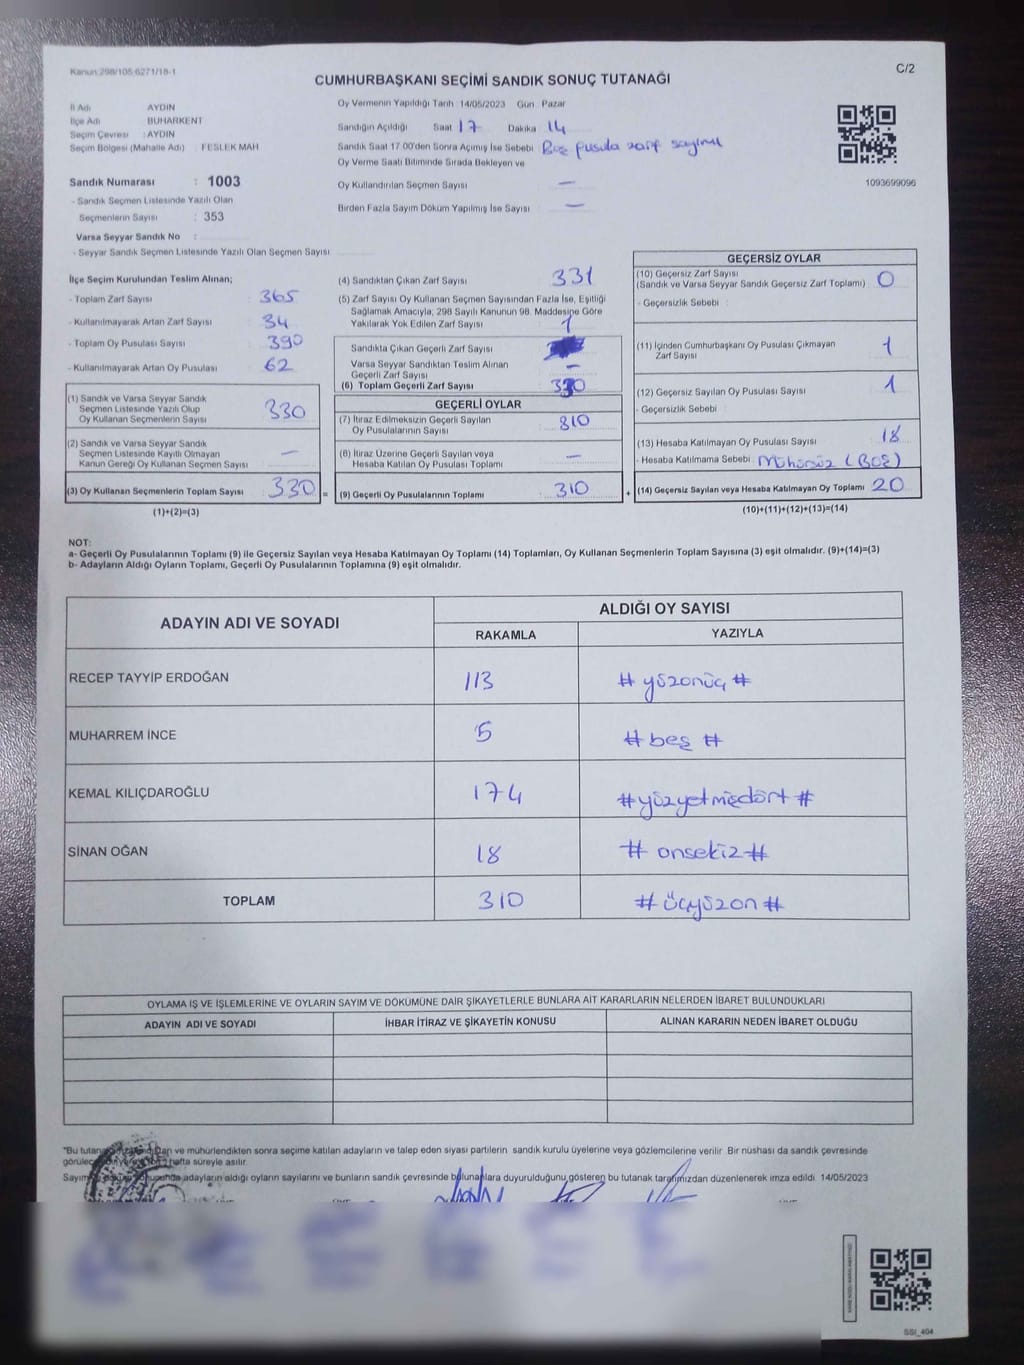 Kanun:298/105,6271/18-1
C/2
CUMHURBAŞKANI SEÇİMİ SANDIK SONUÇ TUTANAĞI
İl Adı : AYDIN
İlçe Adı : BUHARKENT
Seçim Çevresi : AYDIN
Seçim Bölgesi (Mahalle Adı) : FESLEK MAH
Sandık Numarası : 1003
- Sandık Seçmen Listesinde Yazılı Olan
Seçmenlerin Sayısı : 353
Varsa Seyyar Sandık No :
- Seyyar Sandık Seçmen Listesinde Yazılı Olan Seçmen Sayısı
Oy Vermenin Yapıldığı Tarih :14/05/2023 Gün: Pazar
Sandığın Açıldığı Saat 17 Dakika 14
Sandık Saat 17.00'den Sonra Açımış İse Sebebi Boş pusula zarf sayımı
Oy Verme Saati Bitiminde Sırada Bekleyen ve
Oy Kullandırılan Seçmen Sayısı —
Birden Fazla Sayım Döküm Yapılmış İse Sayısı —
1093699096
İlçe Seçim Kurulundan Teslim Alınan;
- Toplam Zarf Sayısı 365
- Kullanılmayarak Artan Zarf Sayısı 34
- Toplam Oy Pusulası Sayısı 390
- Kullanılmayarak Artan Oy Pusulası 62
(1) Sandık ve Varsa Seyyar Sandık
Seçmen Listesinde Yazılı Olup
Oy Kullanan Seçmenlerin Sayısı 330
(2) Sandık ve Varsa Seyyar Sandık
Seçmen Listesinde Kayıtlı Olmayan
Kanun Gereği Oy Kullanan Seçmen Sayısı —
(3) Oy Kullanan Seçmenlerin Toplam Sayısı 330 =
(1)+(2)=(3)
(4) Sandıktan Çıkan Zarf Sayısı 331
(5) Zarf Sayısı Oy Kullanan Seçmen Sayısından Fazla İse, Eşitliği
Sağlamak Amacıyla, 298 Sayılı Kanunun 98. Maddesine Göre
Yakılarak Yok Edilen Zarf Sayısı 1
Sandıkta Çıkan Geçerli Zarf Sayısı
Varsa Seyyar Sandıktan Teslim Alınan
Geçerli Zarf Sayısı —
(6) Toplam Geçerli Zarf Sayısı 330
GEÇERLİ OYLAR
(7) İtiraz Edilmeksizin Geçerli Sayılan
Oy Pusulalarının Sayısı 310
(8) İtiraz Üzerine Geçerli Sayılan veya
Hesaba Katılan Oy Pusulası Toplamı —
(9) Geçerli Oy Pusulalarının Toplamı 310 +
GEÇERSİZ OYLAR
(10) Geçersiz Zarf Sayısı
(Sandık ve Varsa Seyyar Sandık Geçersiz Zarf Toplamı) 0
- Geçersizlik Sebebi :
(11) İçinden Cumhurbaşkanı Oy Pusulası Çıkmayan
Zarf Sayısı 1
(12) Geçersiz Sayılan Oy Pusulası Sayısı 1
- Geçersizlik Sebebi :
(13) Hesaba Katılmayan Oy Pusulası Sayısı 18
- Hesaba Katılmama Sebebi : Mühürsüz (BOŞ)
(14) Geçersiz Sayılan veya Hesaba Katılmayan Oy Toplamı 20
(10)+(11)+(12)+(13)=(14)
NOT:
a- Geçerli Oy Pusulalarının Toplamı (9) ile Geçersiz Sayılan veya Hesaba Katılmayan Oy Toplamı (14) Toplamları, Oy Kullanan Seçmenlerin Toplam Sayısına (3) eşit olmalıdır. (9)+(14)=(3)
b- Adayların Aldığı Oyların Toplamı, Geçerli Oy Pusulalarının Toplamına (9) eşit olmalıdır.
ADAYIN ADI VE SOYADI
ALDIĞI OY SAYISI
RAKAMLA YAZIYLA
RECEP TAYYİP ERDOĞAN 113 # yüzonüç #
MUHARREM İNCE 5 # beş #
KEMAL KILIÇDAROĞLU 174 # yüzyetmişdört #
SİNAN OĞAN 18 # onsekiz #
TOPLAM 310 # üçyüzon #
OYLAMA İŞ VE İŞLEMLERİNE VE OYLARIN SAYIM VE DÖKÜMÜNE DAİR ŞİKAYETLERLE BUNLARA AİT KARARLARIN NELERDEN İBARET BULUNDUKLARI
ADAYIN ADI VE SOYADI İHBAR İTİRAZ VE ŞİKAYETİN KONUSU ALINAN KARARIN NEDEN İBARET OLDUĞU
"Bu ve mühürlendikten sonra seçime katılan adayların ve talep eden siyasi partilerin sandık kurulu üyelerine veya gözlemcilerine verilir. Bir nüshası da sandık çevresinde
hafta süreyle asılır.
adayların aldığı oyların sayılarını ve bunların sandık çevresinde bulunanlara duyurulduğunu gösteren bu tutanak tarafımızdan düzenlenerek imza edildi. 14/05/2023
SSI_404